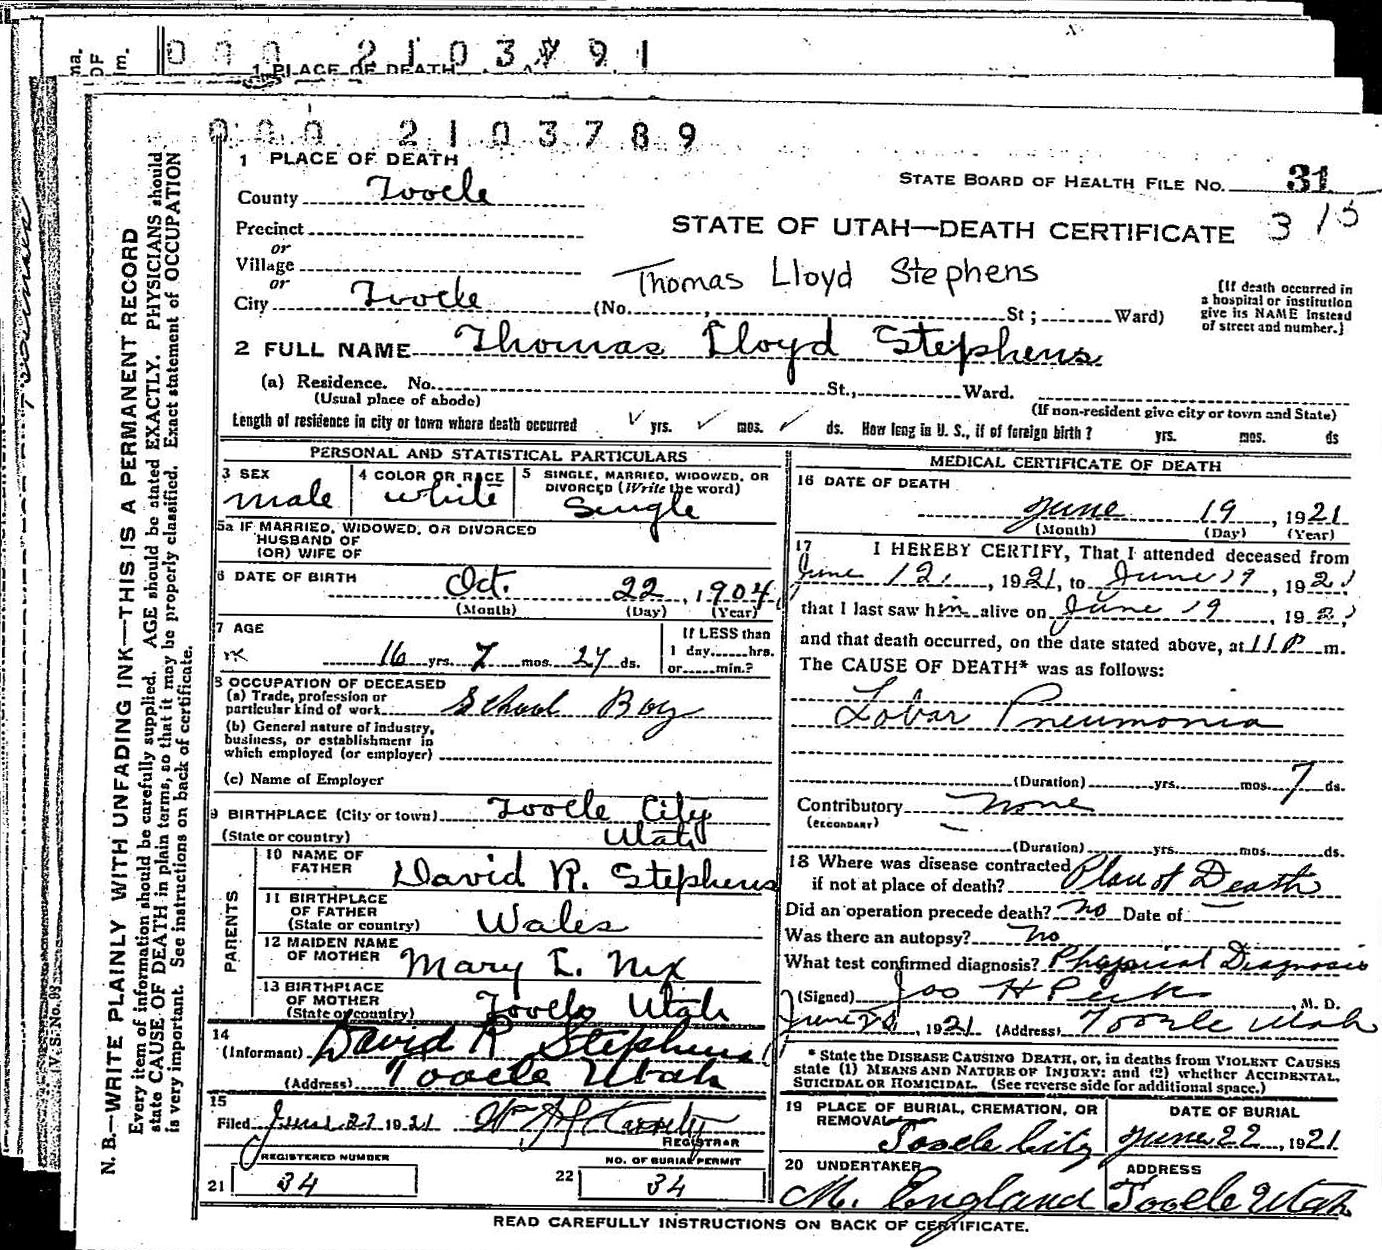 ma.
OF
m.
000 2103791
1 PLACE OF DEATH
000 2103789
N. B.—WRITE PLAINLY WITH UNFADING INK—THIS IS A PERMANENT RECORD
Every item of information should be carefully supplied. AGE should be stated EXACTLY. PHYSICIANS should
state CAUSE OF DEATH in plain terms, so that it may be properly classified. Exact statement of OCCUPATION
is very important. See instructions on back of certificate.
1 PLACE OF DEATH
STATE BOARD OF HEALTH FILE NO. 31
County Tooele
315
STATE OF UTAH—DEATH CERTIFICATE
Precinct
or
Village
or
Thomas Lloyd Stephens
City Tooele (No. , St; Ward)
[If death occurred in
a hospital or institution
give its NAME instead
of street and number.]
2 FULL NAME Thomas Lloyd Stephens
(a) Residence. No. St., Ward.
(Usual place of abode)
(If non-resident give city or town and State)
Length of residence in city or town where death occurred ✓ yrs. ✓ mos. ✓ ds. How long in U. S., if of foreign birth? yrs. mos. ds
PERSONAL AND STATISTICAL PARTICULARS
3 SEX
male
4 COLOR OR RACE
white
5 SINGLE, MARRIED, WIDOWED, OR
DIVORCED (Write the word)
Single
5a IF MARRIED, WIDOWED, OR DIVORCED
HUSBAND OF
(OR) WIFE OF
6 DATE OF BIRTH Oct. 22, 1904
(Month) (Day) (Year)
7 AGE
16 yrs. 7 mos. 27 ds.
If LESS than
1 day hrs.
or min.?
8 OCCUPATION OF DECEASED
(a) Trade, profession or
particular kind of work School Boy
(b) General nature of industry,
business, or establishment in
which employed (or employer)
(c) Name of Employer
9 BIRTHPLACE (City or town) Tooele City
(State or country) Utah
PARENTS
10 NAME OF
FATHER David R. Stephens
11 BIRTHPLACE
OF FATHER
(State or country) Wales
12 MAIDEN NAME
OF MOTHER Mary E. Nix
13 BIRTHPLACE
OF MOTHER
(State or country) Tooele Utah
14
(Informant) David R Stephens
(Address) Tooele Utah
15
Filed 1921
REGISTRAR
REGISTERED NUMBER
21 34
NO. OF BURIAL PERMIT
22 34
MEDICAL CERTIFICATE OF DEATH
16 DATE OF DEATH
June 19, 1921
(Month) (Day) (Year)
17 I HEREBY CERTIFY, That I attended deceased from
June 12, 1921, to June 19, 1921
that I last saw him alive on June 19, 1921,
and that death occurred, on the date stated above, at 11 P m.
The CAUSE OF DEATH* was as follows:
Lobar Pneumonia
(Duration) yrs. mos. 7 ds.
Contributory none
(SECONDARY)
(Duration) yrs. mos. ds.
18 Where was disease contracted
if not at place of death? Place of Death
Did an operation precede death? no Date of
Was there an autopsy? no
What test confirmed diagnosis? Physical Diagnosis
(Signed) Jos H Peck, M. D.
June 20, 1921 (Address) Tooele Utah
* State the DISEASE CAUSING DEATH, or, in deaths from VIOLENT CAUSES
state (1) MEANS AND NATURE OF INJURY; and (2) whether ACCIDENTAL,
SUICIDAL or HOMICIDAL. (See reverse side for additional space.)
19 PLACE OF BURIAL, CREMATION, OR
REMOVAL
Tooele City
DATE OF BURIAL
June 22, 1921
20 UNDERTAKER
M. England
ADDRESS
Tooele Utah
READ CAREFULLY INSTRUCTIONS ON BACK OF CERTIFICATE.